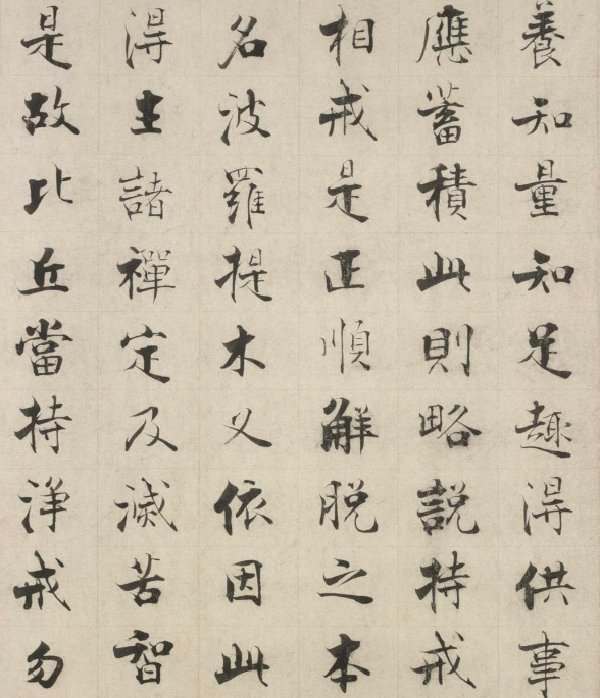 養知量知足趣得供事
應蓄積此則略說持戒
相戒是正順解脫之本
名波羅提木叉依因此
得生諸禪定及滅苦智
是故比丘當持淨戒勿